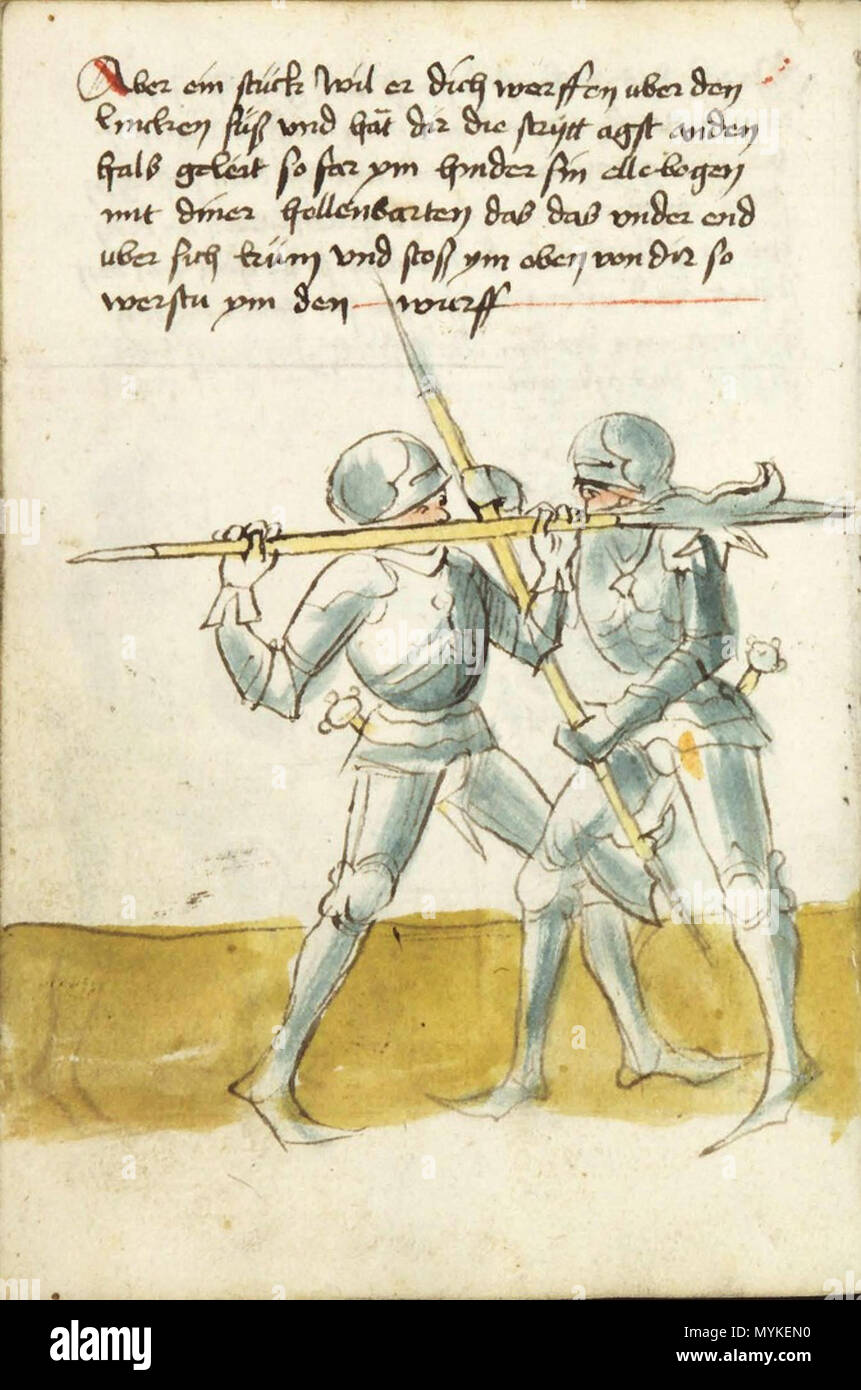 Aber ein stuck wil er dich werffen uber den
lincken füß vnd hät dir die strytt agst an den
hals geleit so far ym hinder sin ellebogen
mit diner hellenbarten das das vnder end
uber sich küm vnd stoß ym oben von dir so
werstu ym den wurff
alamy
Image ID: MYKEN0
www.alamy.com